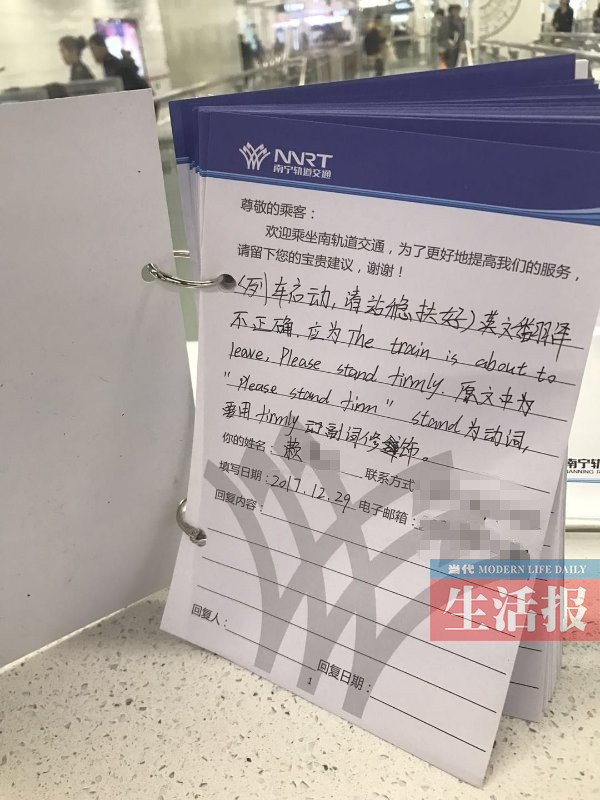 NNRT
南宁轨道交通
尊敬的乘客：
欢迎乘坐南轨道交通，为了更好地提高我们的服务，
请留下您的宝贵建议，谢谢！
（列车启动，请站稳扶好）英文翻译
不正确，应为 The train is about to
leave, Please stand firmly. 原文中为
"please stand firm" stand为动词，
要用firmly 副词修饰。
你的姓名：赖
联系方式
填写日期：2017.12.29 电子邮箱：
回复内容：
回复人：
回复日期：
1
当代 MODERN LIFE DAILY
生活报
南宁轨
NANNING RA